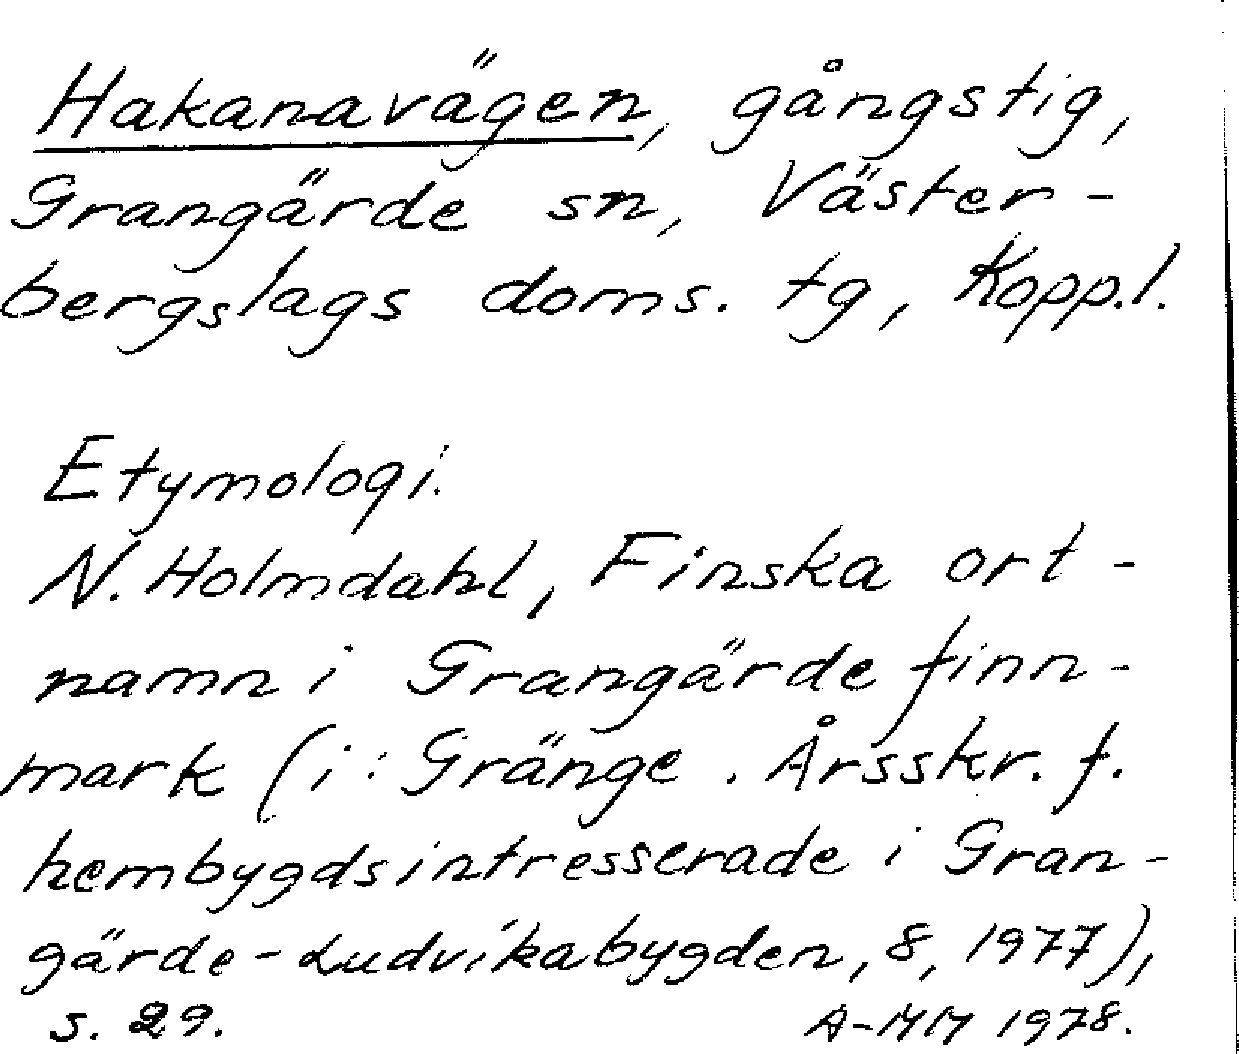 Hakanavägen, gångstig,
Grangärde sn, Väster-
bergslags doms. tg, Kopp.l.
Etymologi.
N. Holmdahl, Finska ort-
namn i Grangärde finn-
mark (i: Gränge. Årsskr. f.
hembygdsintresserade i Gran-
gärde-Ludvikabygden, 8, 1977),
s. 29.
A-MM 1978.